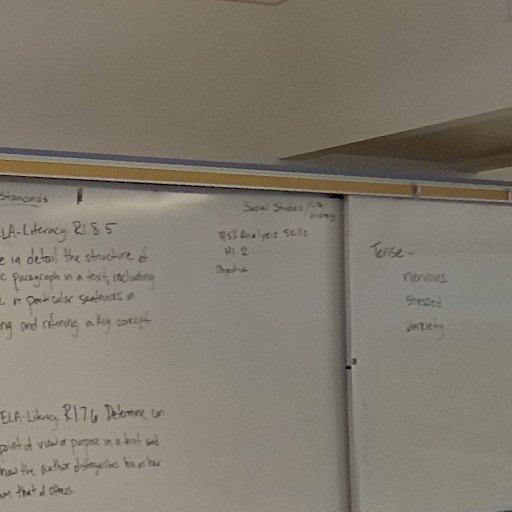 Standards
LA-Literacy RI 8.5
e in detail the structure of
c paragraph in a text, including
particular sentences in
ng and refining a key concept
ELA-Literacy RI.7.6 Determine an
point of view or purpose in a text and
how the author distinguishes his or her
that of others.
Social Studies/
History
Analysis Skills
HI 2
Objective
Tense-
nervous
stressed
anxiety